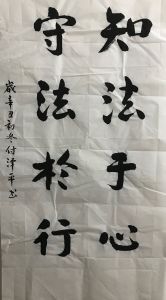 知法于心
守法於行
歲辛丑初冬付泽平书